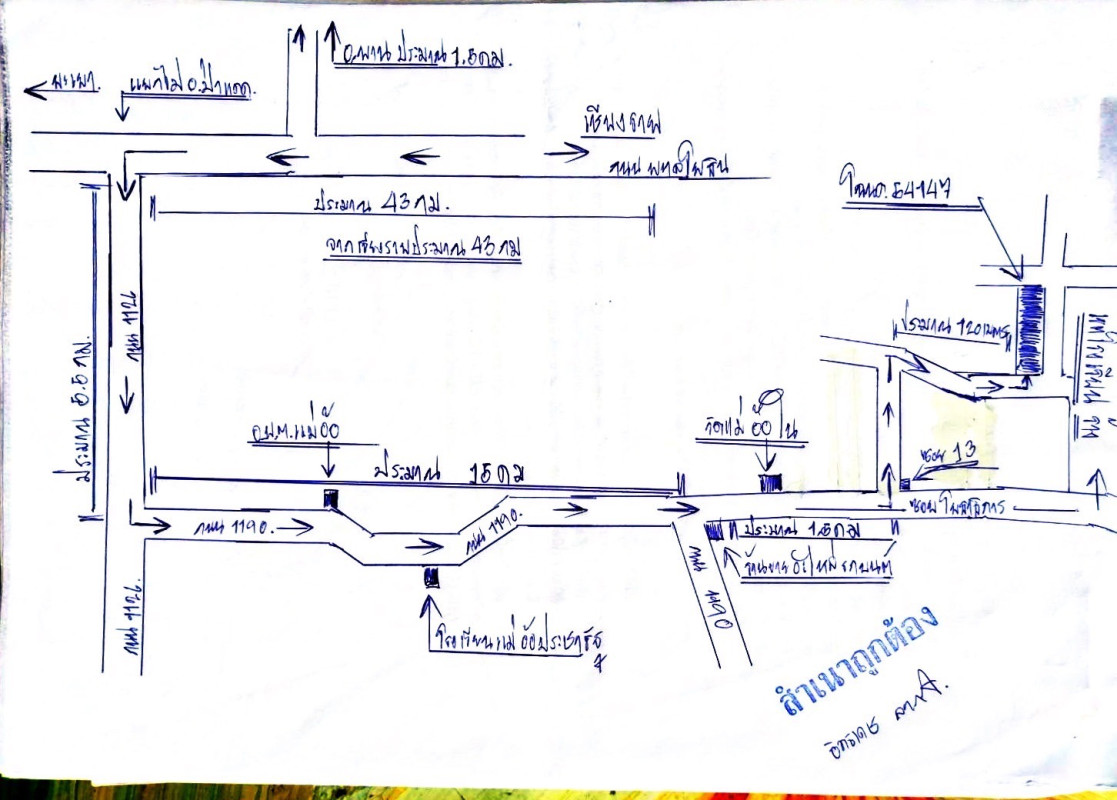 อ.พาน ประมาณ 1.5 กม.
พะเยา.
แยกไป อ.ป่าแดด.
เชียงราย
ถนน พหลโยธิน
ประมาณ 43 กม.
จากเชียงรายประมาณ 43 กม
โฉนด. 54147
ถนน 1126
ประมาณ 5.5 กม.
ประมาณ 120 เมตร
อ.บ.ต. แม่อ้อ
วัดแม่อ้อใน
ประมาณ 15 กม
ซอย 13
ถนน 1190.
ถนน 1190.
ประมาณ 1.5 กม
ร้านขายอะไหล่รถยนต์
ถนน 1126.
ถนน 1190
โรงเรียนแม่อ้อประชารัฐ
สำเนาถูกต้อง